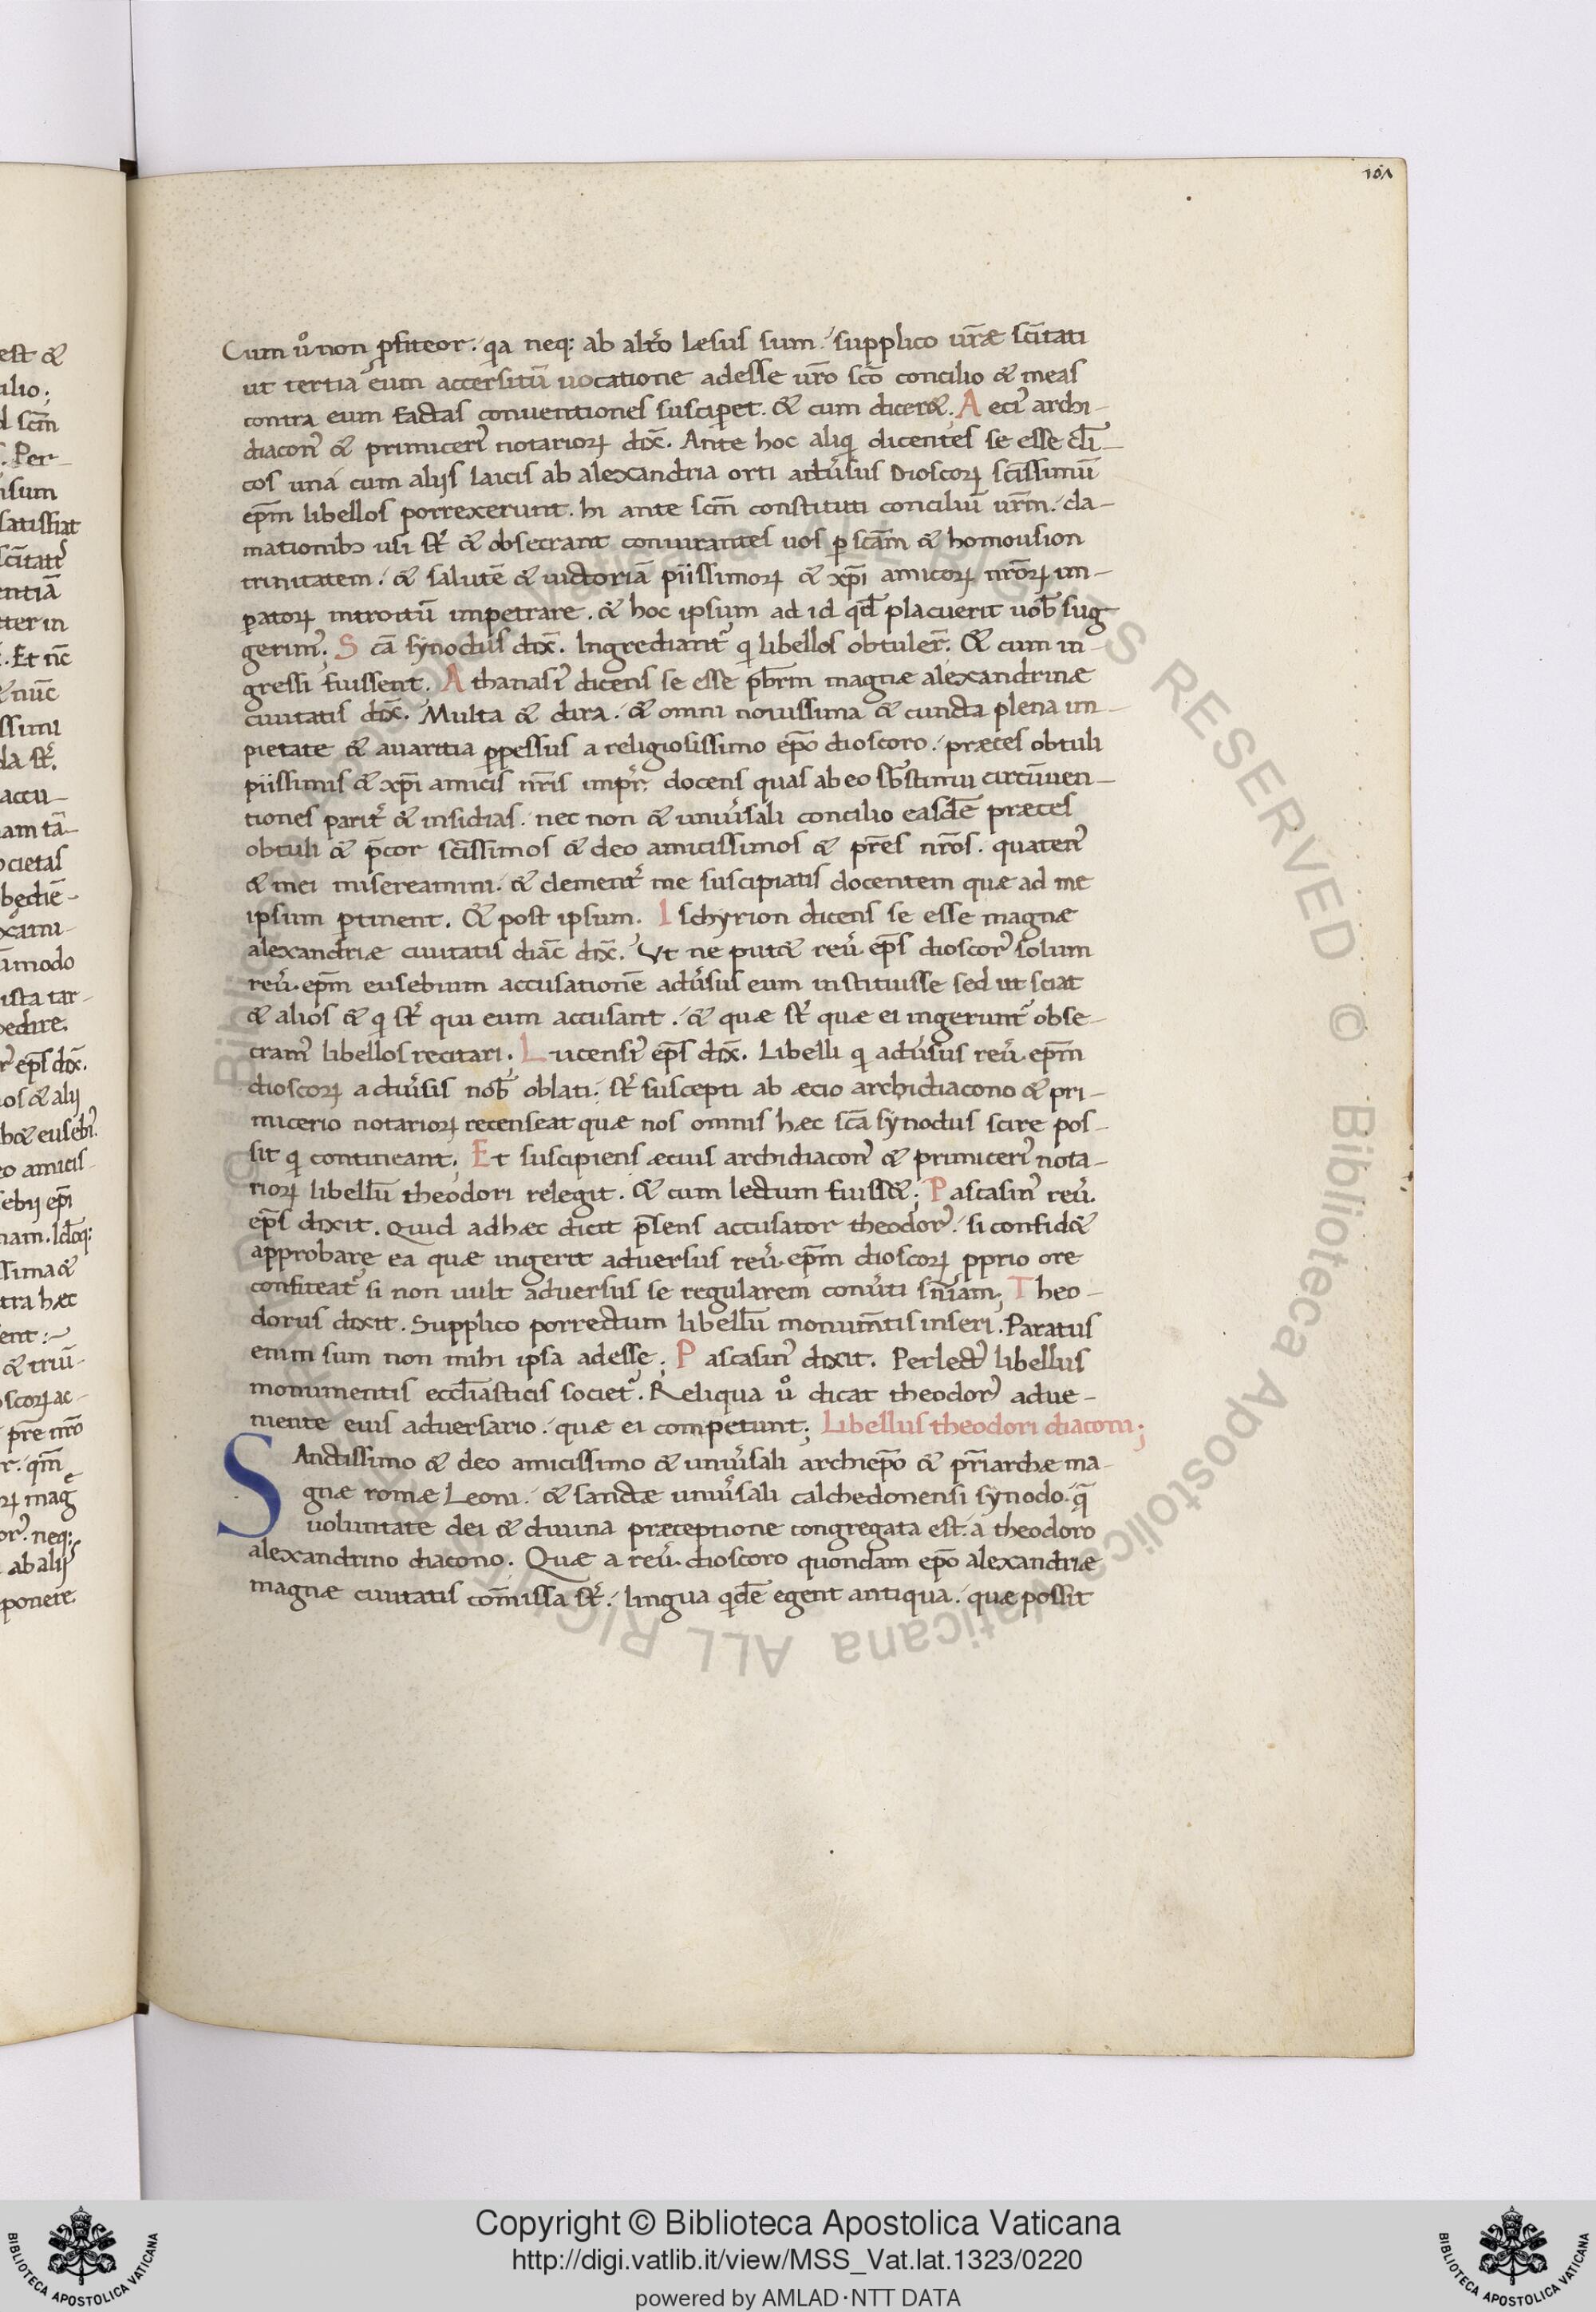 101
Cum u͛o non ꝓfiteor. qa neq: ab alt͛o læsus sum. supplico ur̄æ sc̄itati
ut tertia eum accersitū uocatione adesse ur̄o sc̄o concilio & meas
contra eum factas conuentiones susciperet. & cum dicer&. Aeci᾽ archi-
diacon᾽ & primiceri᾽ notarioꝝ dix̄. Ante hoc aliqi dicentes se esse cl̄i-
cos una cum alijs laicis ab alexandria orti adu͛sus Dioscoꝝ sc̄issimū
ep̄m libellos porrexerunt. hi ante scm̄ constituti conciliū ur̄m. cla-
mationibꝫ usi st͛ & obsecrant coniurantes uos ꝑ scām & homousion
trinitatem. & salutē & uictoriā piissimoꝝ & xp̄i amicoꝝ nr̄oꝝ im-
ꝑatoꝝ introitū impetrare. & hoc ipsum ad id qd̄ placuerit uob̄ sug
gerim᾽. Scā synodus dix̄. Ingrediant᾽ qi libellos obtuler̄. & cum in-
gressi fuissent. Athanasi᾽ dicens se esse pb̄rm magnæ alexandrinæ
ciuitatis dix̄. Multa & dira. & omni nouissima & cuncta plena im-
pietate & auaritia ꝑpessus a religiosissimo ep̄o dioscoro. præces obtuli
piissimis & xp̄i amicis nr̄is impr͛. docens quas ab eo sb̄stinui circūuen-
tiones parit͛ & insidias. nec non & uniu͛sali concilio easdē præces
obtuli & p̄cor sc̄issimos & deo amicissimos & pr̄es nr̄os. quaten᾽
& mei misereamini. & clement͛ me suscipiatis docentem quæ ad me
ipsum ꝑtinent. & post ipsum. Ischyrion dicens se esse magnæ
alexandriæ ciuitatis diac̄ dix̄. Ut ne put& reu͛. ep̄s dioscor᾽ solum
reu͛. ep̄m eusebium accusationē adu͛sus eum instituisse sed ut sciat
& alios & qi st͛ qui eum accusant. & quæ st͛ quæ ei ingerunt᾽ obse-
cram᾽ libellos recitari. Lucensi᾽ ep̄s dix̄. Libelli qi adu͛sus reu͛. ep̄m
dioscoꝝ a diu͛sis nob̄ oblati. st͛ suscepti ab æcio archidiacono & pri-
micerio notarioꝝ recenseat quæ nos omnis hæc scā synodus scire pos-
sit qi contineant. Et suscipiens æcius archidiacon᾽ & primiceri᾽ nota-
rioꝝ libellū theodori relegit. & cum lectum fuiss&; Pascasin᾽ reu͛.
ep̄s dixit. Quid ad hæc dicit p̄sens accusator theodor᾽. si confid&
approbare ea quæ ingerit adversus reu͛. ep̄m dioscoꝝ pprio ore
confiteat᾽ si non uult adversus se regularem conu͛ti sn̄iam; Theo-
dorus dixit. Supplico porrectum libellū monum̄tis inseri. Paratus
enim sum non mihi ipsa adesse; Pascasin᾽ dixit. Perlect᾽ libellus
monumentis eccl̄iasticis societ᾽. Reliqua u͛o dicat theodor᾽ adue-
niente eius adversario. quæ ei competunt; Libellus theodori diaconi;
SAnctissimo & deo amicissimo & uniu͛sali archiep̄o & pr̄iarchæ ma-
gnæ romæ Leoni. & sanctæ uniu͛sali calchedonensi synodo. q̄
uoluntate dei & diuina præceptione congregata est. a theodoro
alexandrino diacono. Quæ a reu͛. dioscoro quondam ep̄o alexandriæ
magnæ ciuitatis com̄issa st͛. lingua qidē egent antiqua. quæ possit
Copyright © Biblioteca Apostolica Vaticana
http://digi.vatlib.it/view/MSS_Vat.lat.1323/0220
powered by AMLAD·NTT DATA